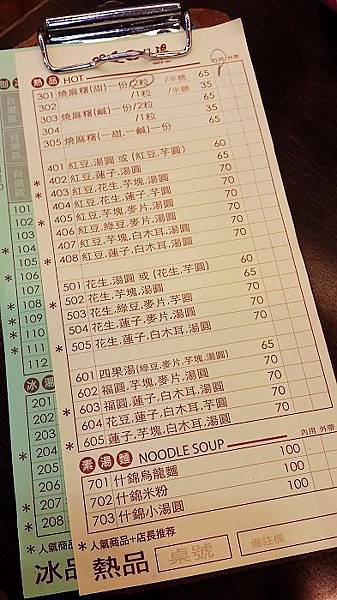 熱品 HOT 內用 外帶
301 燒麻糬(甜)一份/2粒 /半糖 65
302 /1粒 /半糖 35
303 燒麻糬(鹹)一份/2粒 65
304 /1粒 35
305 燒麻糬(一甜.一鹹)一份 65
401 紅豆.湯圓 或 (紅豆.芋圓) 60
* 402 紅豆.蓮子.湯圓 65
* 403 紅豆.花生.芋塊.湯圓 70
404 紅豆.花生.蓮子.芋圓 70
405 紅豆.芋塊.麥片.湯圓 70
406 紅豆.綠豆.麥片.湯圓 70
407 紅豆.芋塊.白木耳.湯圓 70
* 408 紅豆.蓮子.白木耳.湯圓 70
501 花生.湯圓 或 (花生.芋圓) 60
* 502 花生.芋塊.湯圓 65
503 花生.綠豆.麥片.芋圓 70
504 花生.蓮子.麥片.湯圓 70
* 505 花生.蓮子.白木耳.湯圓 70
601 四果湯(綠豆.麥片.芋塊.湯圓) 65
602 福圓.芋塊.麥片.湯圓 70
* 603 福圓.蓮子.白木耳.湯圓 70
604 花豆.蓮子.白木耳.芋圓 70
* 605 蓮子.芋塊.白木耳.湯圓 70
素湯麵 NOODLE SOUP 內用 外帶
701 什錦烏龍麵 100
702 什錦米粉 100
703 什錦小湯圓 100
* 人氣商品+店長推荐
熱品 桌號 備註欄
101
102
103
* 104
105
* 106
107
* 108
* 109
* 110
* 111
112
冰
201
* 202
* 203
* 204
205
206
* 207
* 208
* 人氣商品
冰品